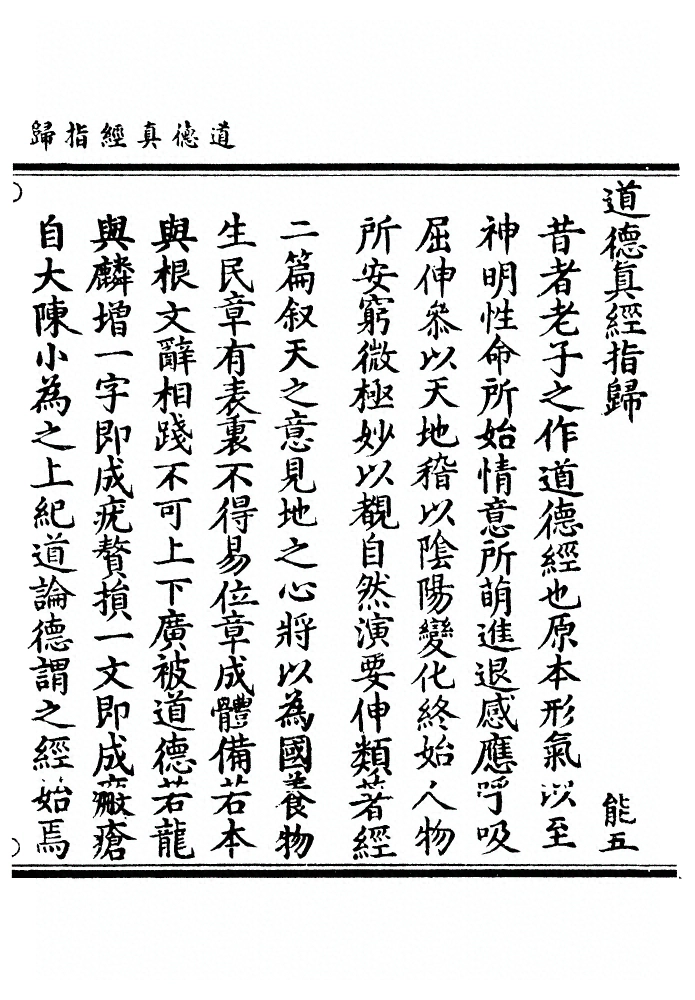 道德真經指歸
道德眞經指歸 能五
昔者老子之作道德經也原本形氣以至
神明性命所始情意所萌進退感應呼吸
屈伸叅以天地稽以陰陽變化終始人物
所安窮微極妙以覩自然演要伸類著經
二篇叙天之意見地之心將以為國養物
生民章有表裏不得易位章成體備若本
與根文辭相踐不可上下廣被道德若龍
與麟增一字即成疣贅損一文即成瘢瘡
自大陳小為之上紀道論德謂之經始焉